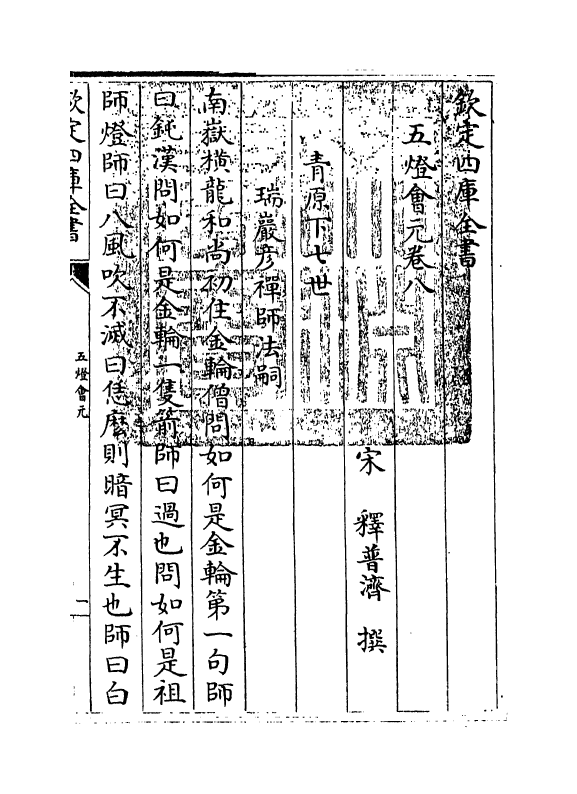 欽定四庫全書
五燈會元卷八
宋 釋普濟 撰
青原下七世
瑞巖彥禪師法嗣
南嶽橫龍和尚初住金輪僧問如何是金輪第一句師
曰鈍漢問如何是金輪一隻箭師曰過也問如何是祖
師燈師曰八風吹不滅曰恁麽則暗冥不生也師曰白
欽定四庫全書
五燈會元